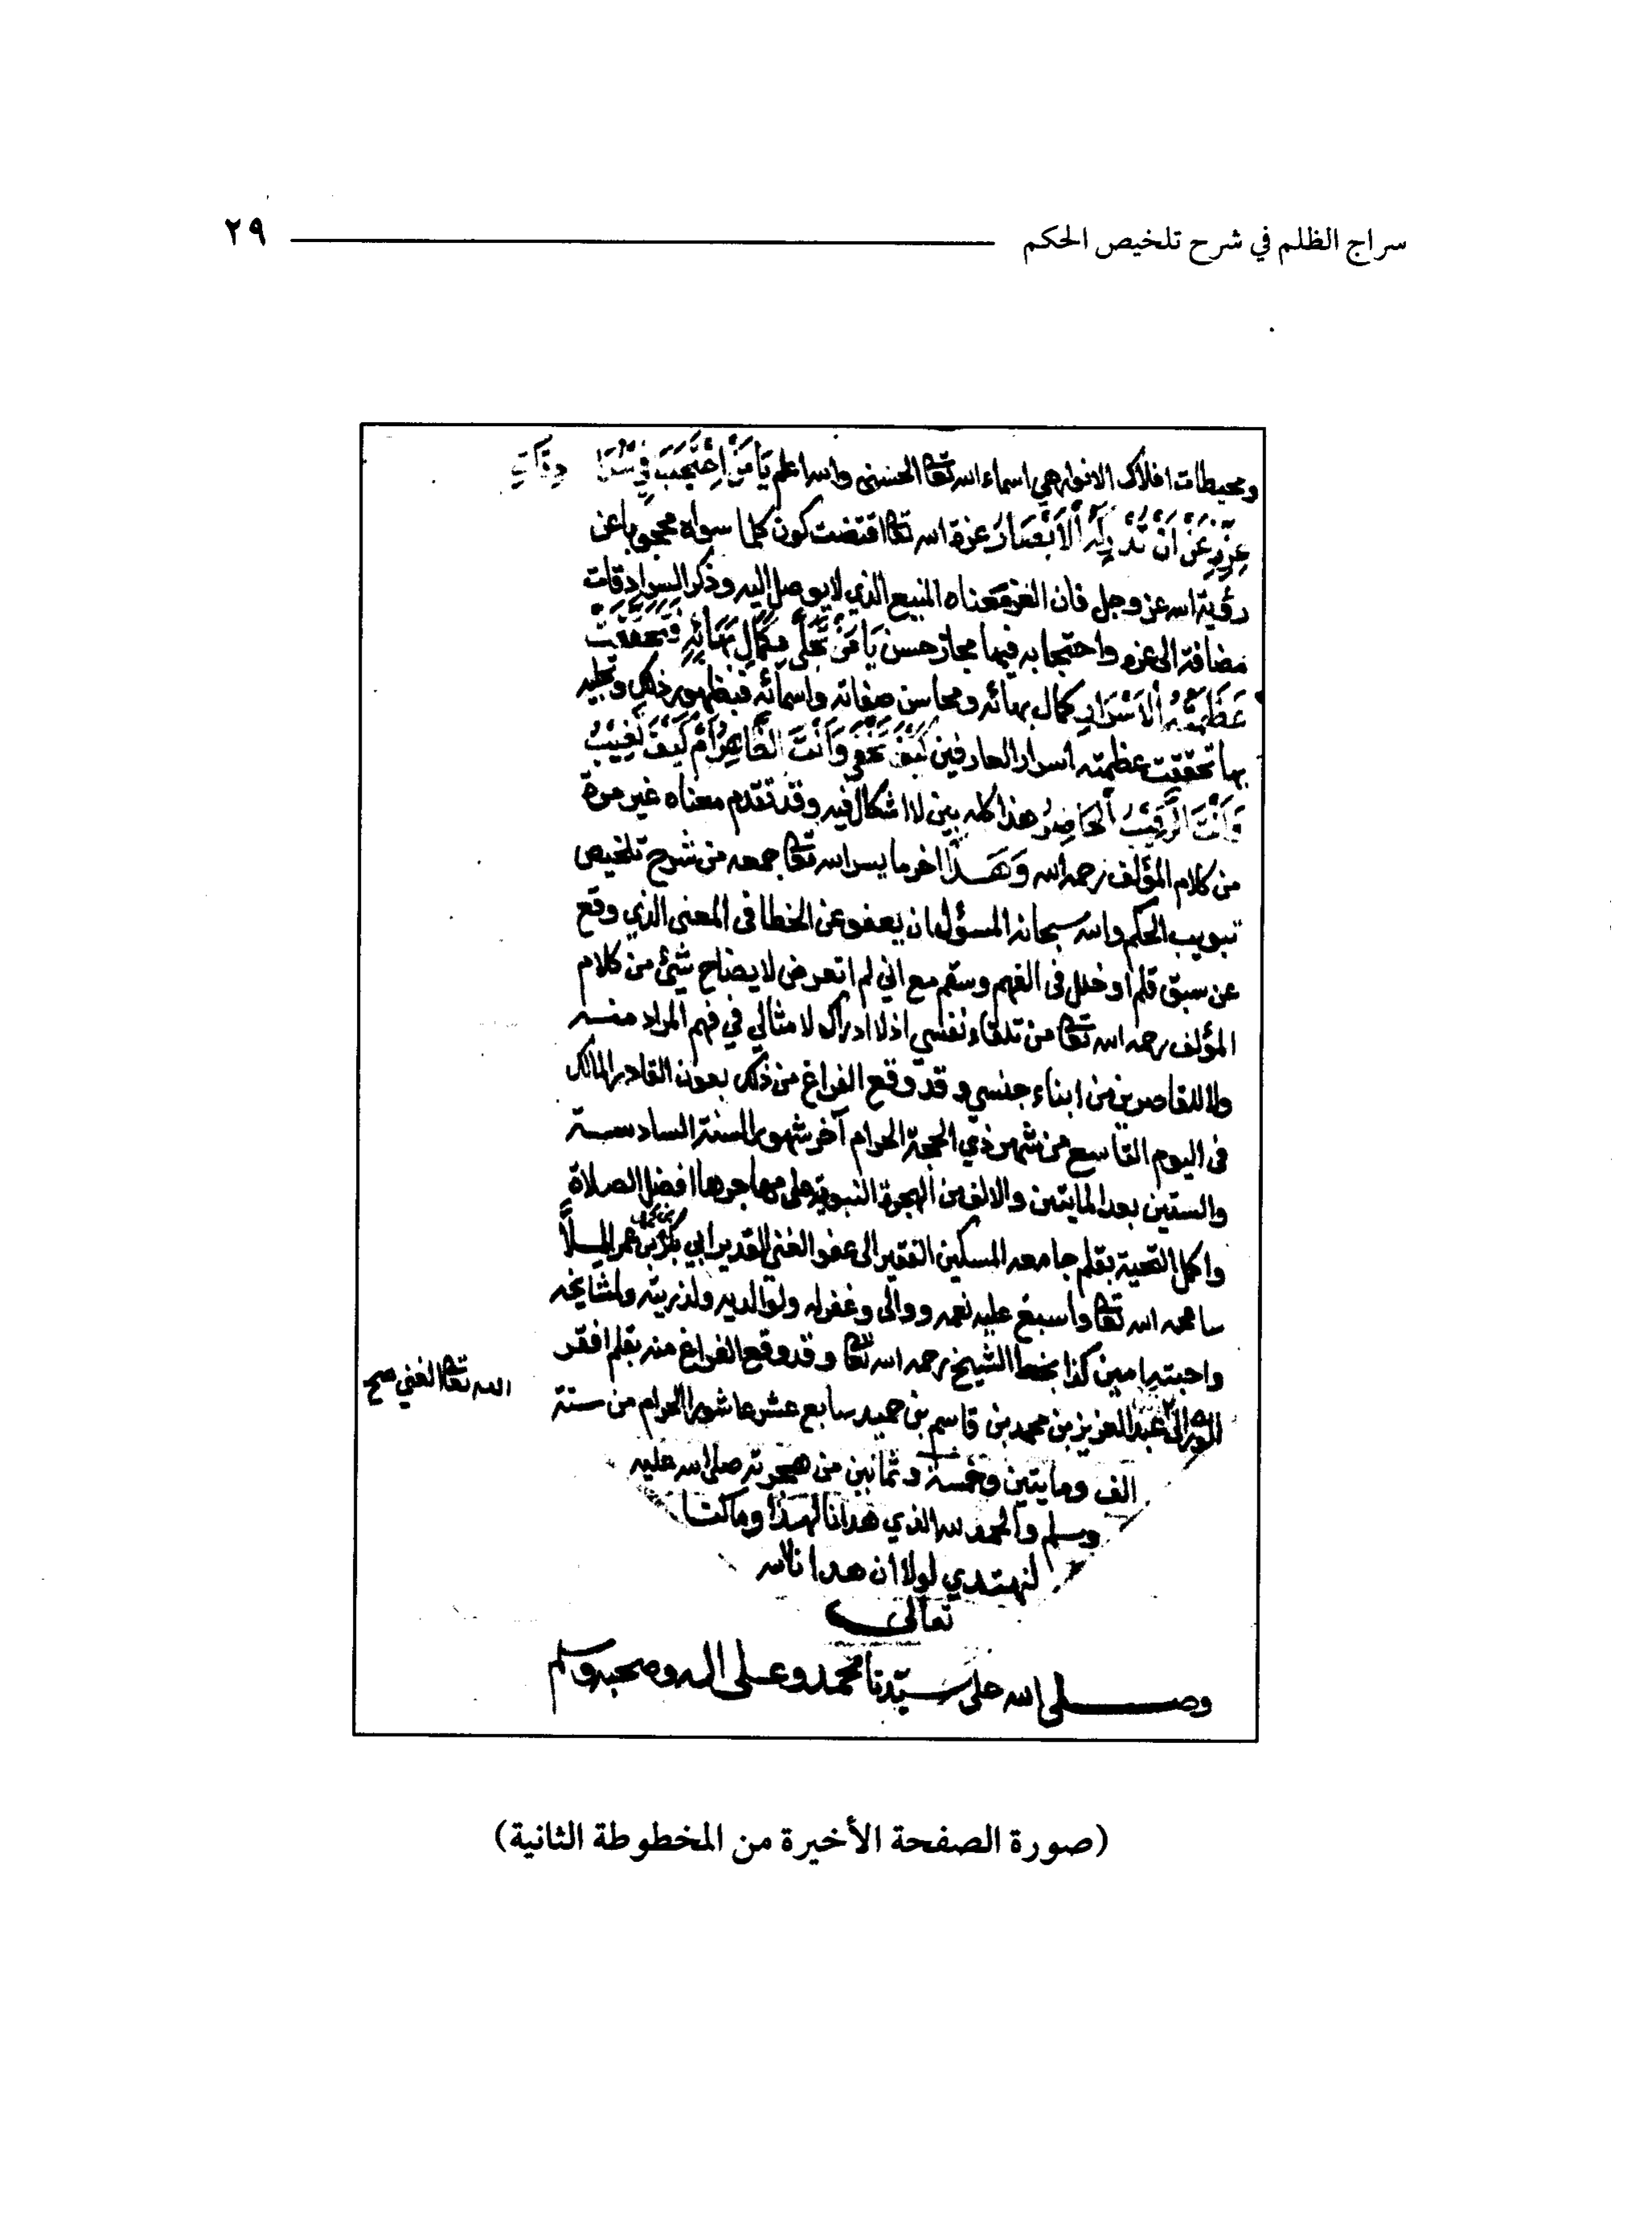 سراج الظلم في شرح تلخيص الحكم ٢٩
ومحيطات افلاك الانوار هي اسماء الله تعا الحسنى والله اعلم يَا مَنْ احْتَجَبَ فِي سُرَادِقَاتِ
عِزِّهِ عَنْ أَنْ تُدْرِكَهُ الْأَبْصَارُ عزة الله تعا اقتضت كون كلما سواه محجوبا عن
رؤية الله عز وجل فان العز معناه المنيع الذي لا يوصل اليه وذكر السرادقات
مضافة الى عزه واحتجابه فيها مجاز حسن يَا مَنْ تَجَلَّى بِكَمَالِ بَهَائِهِ فَتَحَقَّقَتْ
عَظَمَتَهُ الْأَسْرَارُ كمال بهائه ومحاسن صفاته واسمائه فبظهور ذلك وتجليه
بها تحققت عظمته اسرار العارفين كَيْفَ تَخْفَى وَأَنْتَ الظَّاهِرُ أَمْ كَيْفَ تَغِيبُ
وَأَنْتَ الرَّقِيبُ الْحَاضِرُ هذا كله بين لا اشكال فيه وقد تقدم معناه غير مرة
من كلام المؤلف رحمه الله وَهَذَا اخر ما يسر الله تعا جمعه من شرح تلخيص
تبويب الحكم والله سبحانه المسؤل ان يعفو عن الخطا في المعنى الذي وقع
عن سبق قلم او خلل في الفهم وسقم مع اني لم اتعرض لايضاح شئ من كلام
المؤلف رحمه الله تعا من تلقاء نفسي اذ لا ادراك لامثالي في فهم المراد منه
ولا للقاصرين من ابناء جنسي وقد وقع الفراغ من ذلك بعون القادر المالك
في اليوم التاسع من شهر ذي الحجة الحرام آخر شهور السنة السادسة
والستين بعد المايتين والالف من الهجرة النبوية على مهاجرها افضل الصلاة
واكمل التحية بقلم جامعه المسكين الفقير الى عفو الغني القدير ابي بكر بن محمد بن عمر الملا
سامحه الله تعا واسبغ عليه نعمه ووالى وغفر له ولوالديه ولذريته ولمشايخه
واحبته امين كذا بخط الشيخ رحمه الله تعا وقد وقع الفراغ منه بقلم افقر
الله تعا الغني صح
الورى الى عبد العزيز بن محمد بن قاسم بن حميد سابع عشر عاشورا الحرام من سنة
الف ومايتين وخمسة وثمانين من هجرته صلى الله عليه
وسلم والحمد لله الذي هدانا لهذا وما كنا
لنهتدي لولا ان هدانا الله
تعالى
وصلى الله على سيّدنا محمد وعلى اله وصحبه وسلم
(صورة الصفحة الأخيرة من المخطوطة الثانية)